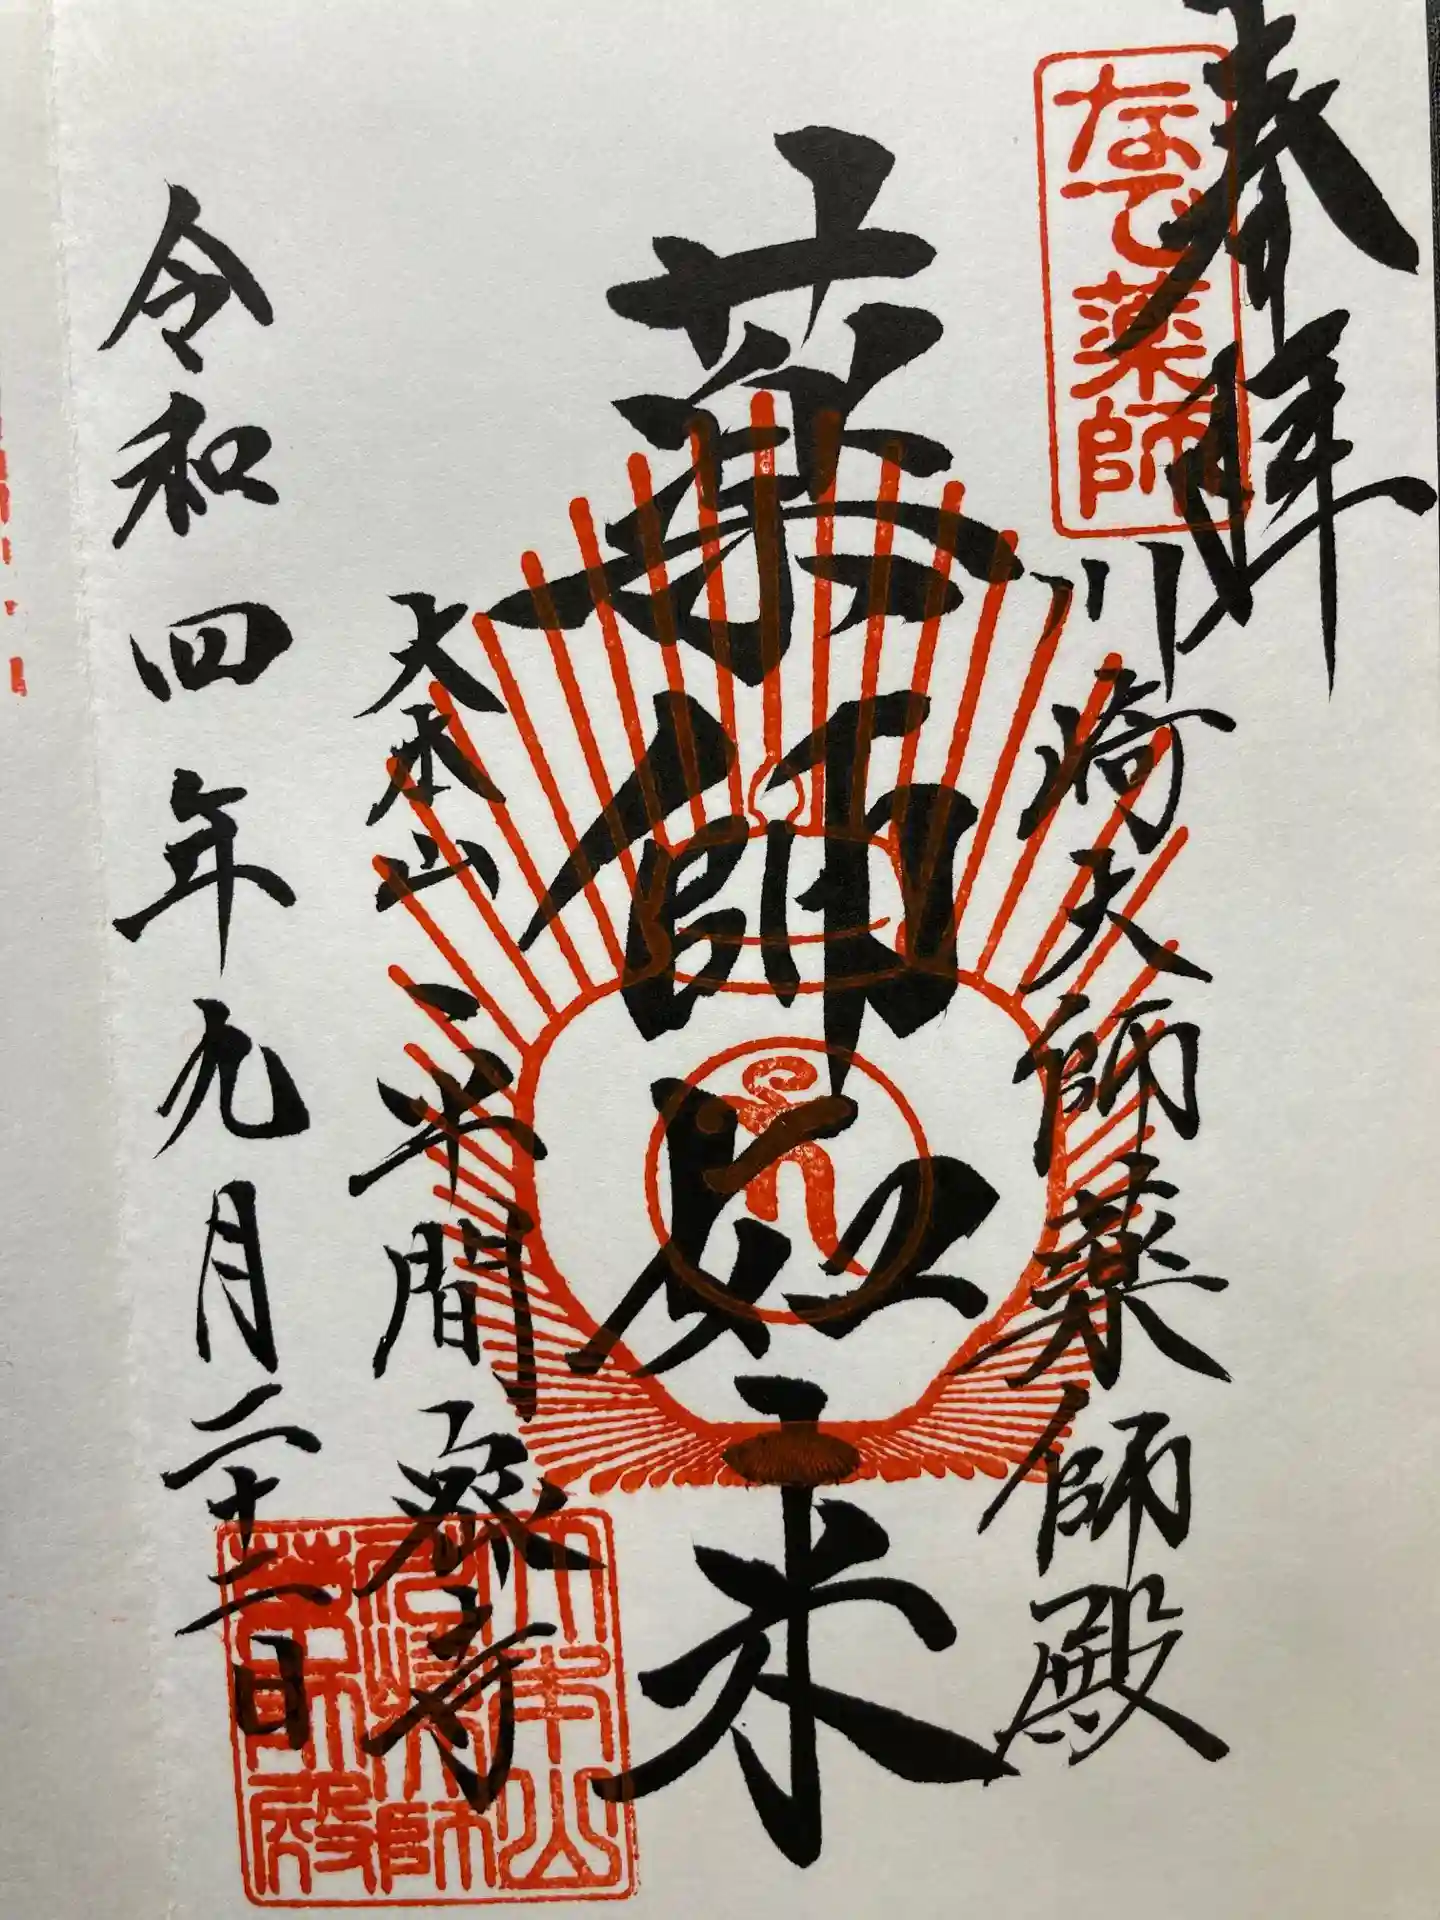 奉拝
なで薬師
川崎大師薬師殿
薬師如来
大本山
平間寺
令和四年九月二十二日
大本山
川崎大師
薬師殿